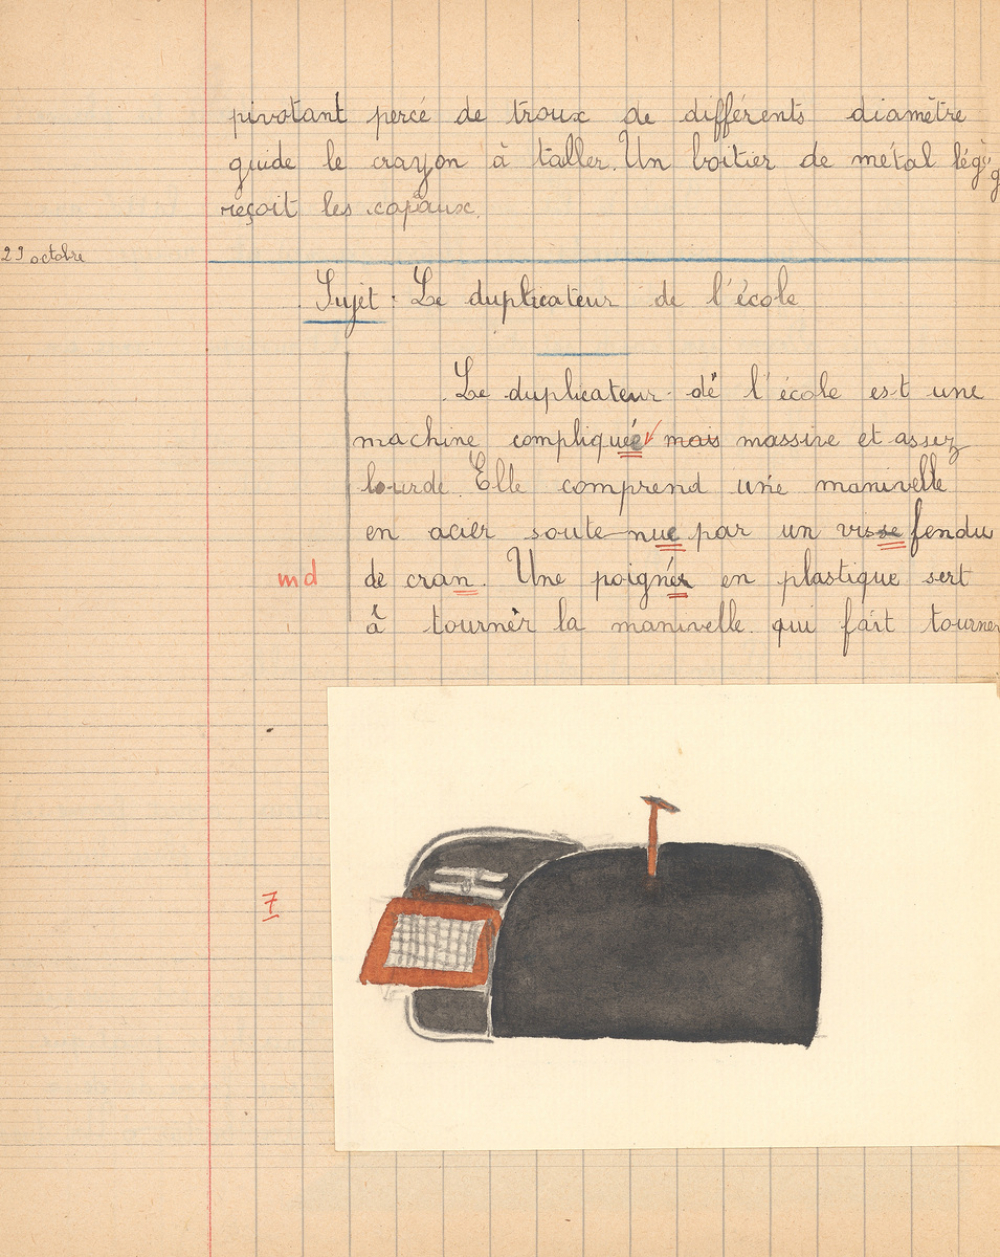 pivotant percé de troux de différents diamètre
guide le crayon à taller. Un boitier de métal
reçoit les copaux.
29 octobre
Sujet : Le duplicateur de l'école
Le duplicateur de l'école est une
machine compliquée mais massive et assez
lourde. Elle comprend une manivelle
en acier soutenue par un visse fendu
md
de cran. Une poignés en plastique sert
à tourner la manivelle qui fait tourner
7